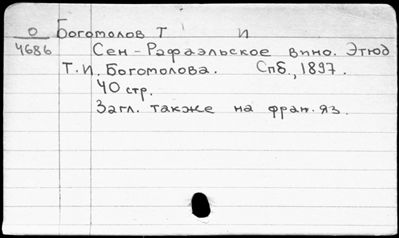 О Богомолов Т И
4686 Сен-Рафаэльское вино. Этюд
Т.И. Богомолова. Спб., 1897.
40 стр.
Загл. также на фран. яз.